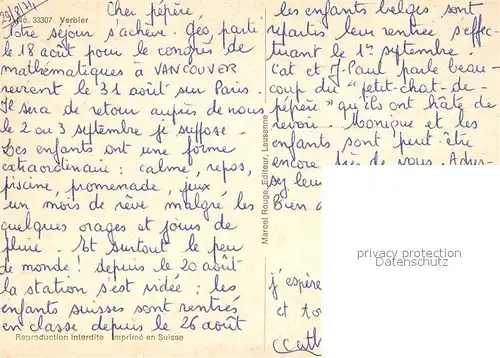 29/8/74
No. 33307 Verbier
Cher pépère,
Votre séjour s'achève. Géo parte
le 18 août pour le congrès de
mathématiques à VANCOUVER
revient le 31 août sur Paris.
Il sera de retour auprès de nous
le 2 ou 3 septembre je suppose.
Les enfants ont une forme
extraordinaire : calme, repos,
piscine, promenade, jeux
un mois de rêve malgré les
quelques orages et jours de
pluie. Et surtout le peu
de monde ! depuis le 20 août
la station s'est vidée : les
enfants suisses sont rentrés
en classe depuis le 26 août
Reproduction interdite Imprimé en Suisse
Marcel Rouge, Editeur, Lausanne
les enfants belges sont
repartis leur rentrée s'effec-
tuant le 1er septembre.
Cat et J. Paul parle beau-
coup du "petit-chat-de-
pépère" qu'ils ont hâte de
revoir. Monique et les
enfants sont peut-être
encore près de vous. Adres-
sez leur
Bien a
j'espère
et to
Cath
privacy protection
Datenschutz